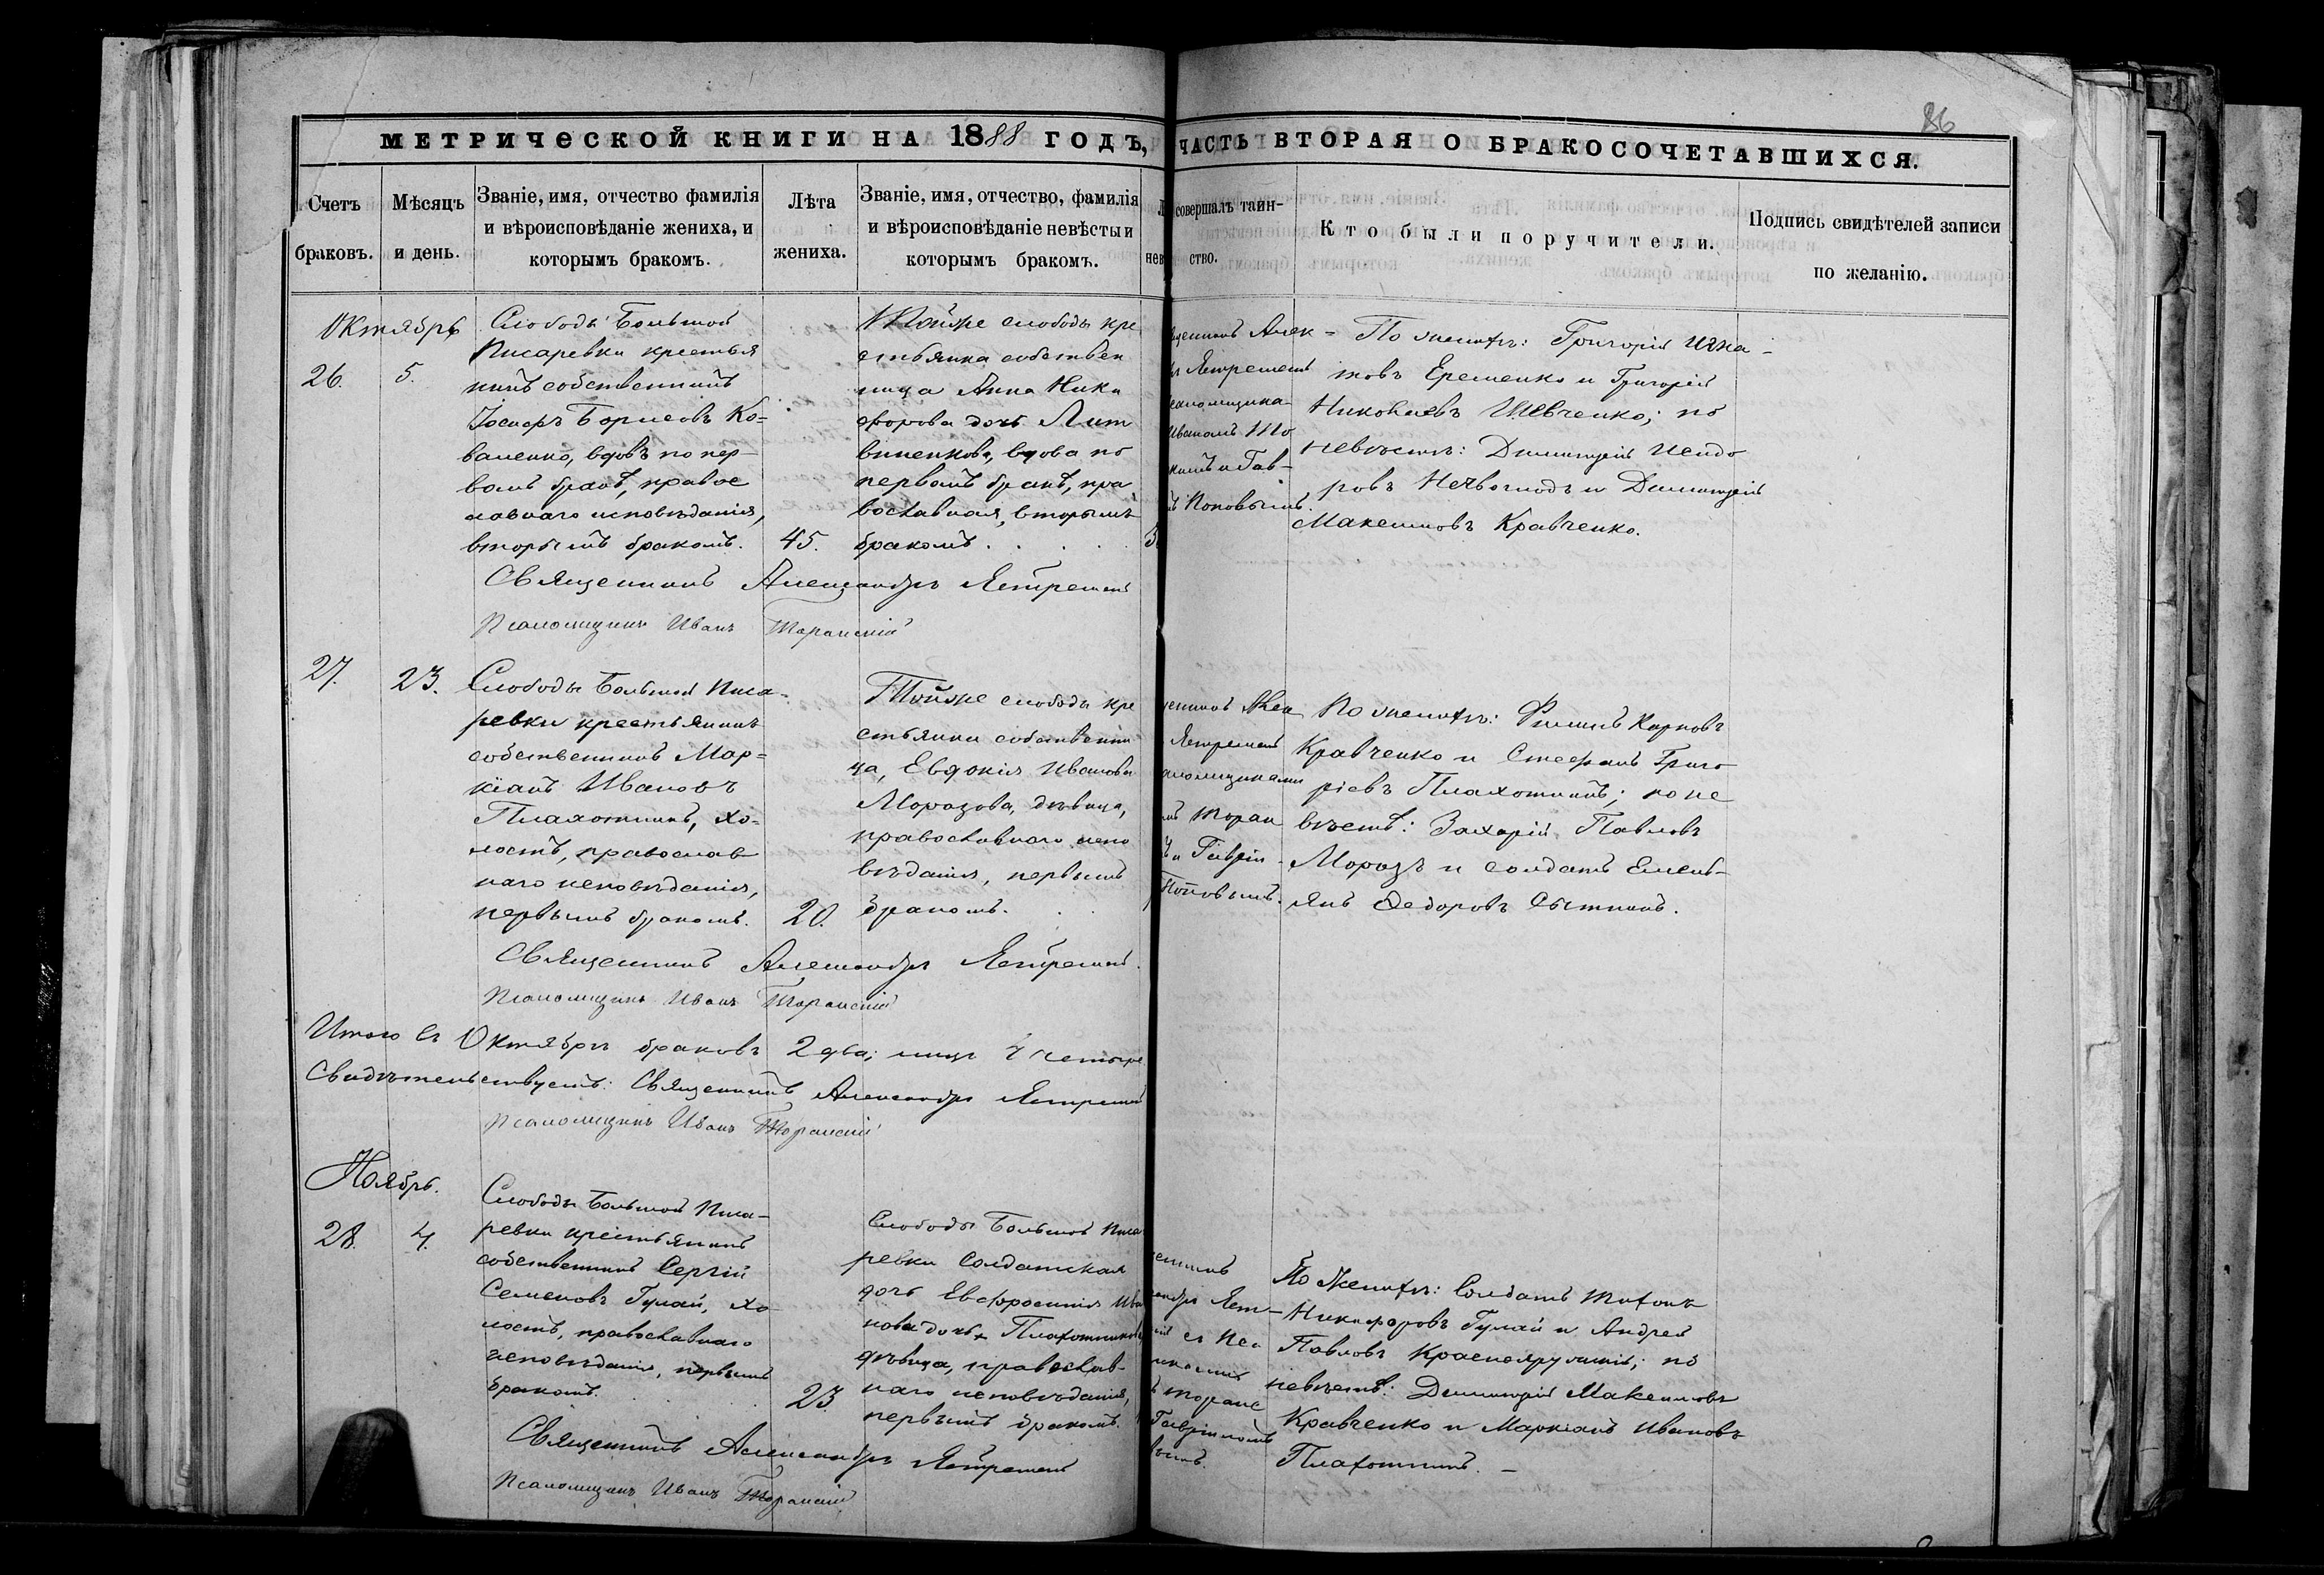 86
МЕТРИЧЕСКОЙ КНИГИ НА 1888 ГОДЪ, ЧАСТЬ ВТОРАЯ О БРАКОСОЧЕТАВШИХСЯ.
Счетъ
браковъ.
Мѣсяцъ
и день.
Званіе, имя, отчество фамилія
и вѣроисповѣданіе жениха, и
которымъ бракомъ.
Лѣта
жениха.
Званіе, имя, отчество, фамилія
и вѣроисповѣданіе невѣсты и
которымъ бракомъ.
совершалъ таин-
ство.
Кто были поручители.
Подпись свидѣтелей записи
по желанію.
Октябрь
26.
5.
Слободы Большой
Писаревки крестья
нинъ собственникъ
Іосифъ Борисовъ Ко-
валенко, вдовъ по пер-
вомъ бракѣ, правос
лавнаго исповѣданія,
вторымъ бракомъ.
45.
Тойже слободы кре
стьянка собствен
ница Анна Ники
форова дочь Лит
виненкова, вдова по
первомъ бракѣ, пра
вославная, вторымъ
бракомъ
Алек-
Ястремск
Иваномъ То
и Гав-
Поповымъ.
По женихѣ: Григорій Игна-
товъ Еременко и Григорій
Николаевъ Шевченко; по
невѣстѣ: Димитрій Исидо
ровъ и Димитрій
Максимовъ Кравченко.
Священникъ Александръ Ястремскій
Псаломщикъ Иванъ Торанскій
27.
23.
Слободы Большой Писа-
ревки крестьянинъ
собственникъ Мар-
кіанъ Ивановъ
Плахотникъ, хо-
лостъ, православ
наго исповѣданія,
первымъ бракомъ.
20.
Тойже слободы кре
стьянка собственни
ца, Евдокія Иванова
Морозова, дѣвица,
православнаго испо
вѣданія, первымъ
бракомъ.
Ястремскій
Торан
и Гавріи-
Поповымъ.
По женихѣ: Филипъ Карповъ
Кравченко и Стефанъ Григо
ріевъ Плахотникъ; по не
вѣстѣ: Захарій Павловъ
Морозъ и солдатъ Емель-
янъ Ѳедоровъ Сытникъ.
Священникъ Александръ Ястремскій.
Псаломщикъ Иванъ Торанскій
Итого въ Октябрѣ браковъ 2 два; лицъ 4 четыре
Свидѣтельствуетъ: Священникъ Александръ Ястремскій
Псаломщикъ Иванъ Торанскій
Ноябрь.
28.
4.
Слободы Большой Писа-
ревки крестьянинъ
собственникъ Сергій
Семеновъ Гулай, хо
лостъ, православнаго
исповѣданія, первымъ
бракомъ.
23.
Слободы Большой Писа
ревки солдатская
дочь Евфросинія Ива
нова дочь Плахотникова,
дѣвица, православ-
наго исповѣданія,
первымъ бракомъ.
Яст-
съ Пса
Торанс
Гавріиломъ
По женихѣ: Солдатъ Тихонъ
Никифоровъ Гулай и Андрей
Павловъ Краснояружскій; по
невѣстѣ: Димитрій Максимовъ
Кравченко и Маркіанъ Ивановъ
Плахотникъ. -
Священникъ Александръ Ястремскій
Псаломщикъ Иванъ Торанскій